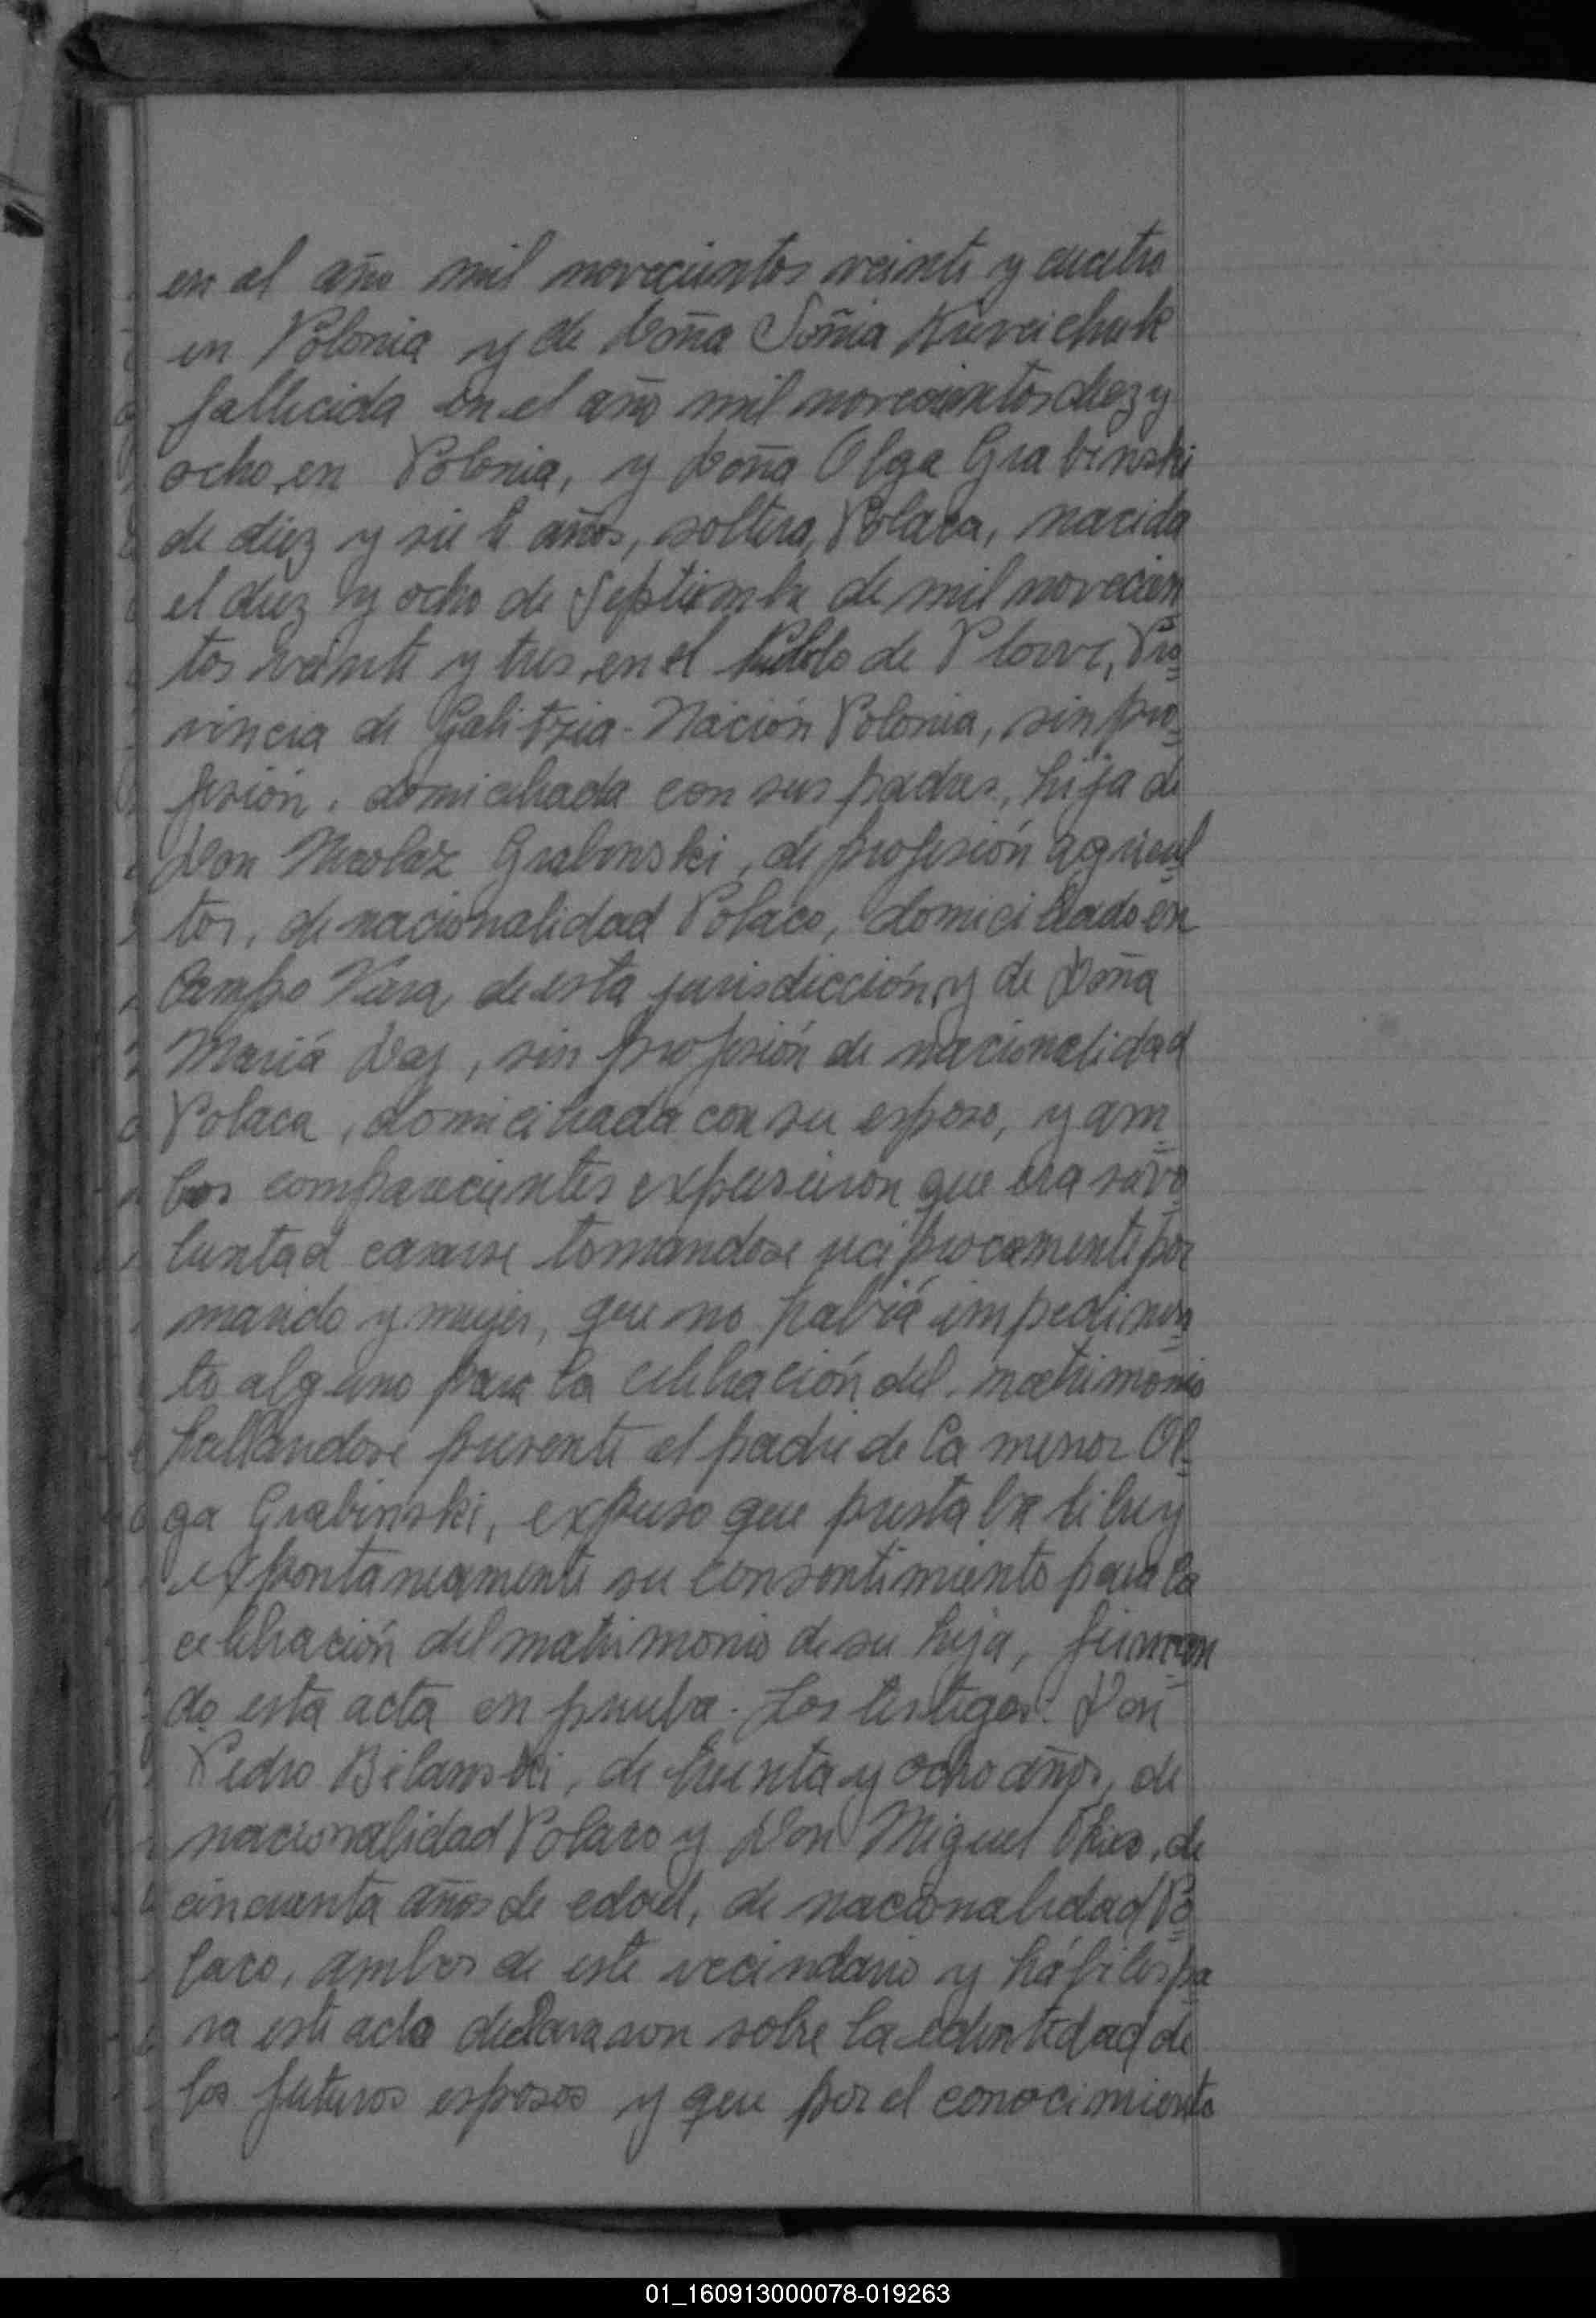 en el año mil novecientos veinte y cuatro
en Polonia y de Doña Soñia Kureichuk
fallecida en el año mil novecientos diez y
ocho, en Polonia, y Doña Olga Grabinski
de diez y siete años, soltera, Polaca, nacida
el diez y ocho de Septiembre de mil novecien
tos veinte y tres, en el Pueblo de Plowe, Pro
vincia de Galitzia - Nación Polonia, sin pro
fesión, domiciliada con sus padres, hija de
Don Nicolaz Grabinski, de profesión agricul
tor, de nacionalidad Polaco, domiciliado en
Campo Vera, de esta jurisdicción, y de Doña
Mariá, sin profesión de nacionalidad
Polaca, domiciliada con su esposo, y am
bos comparecientes expusieron que era su vo
luntad casarse tomandose reciprocamente por
marido y mujer, que no habiá impedimen
to alguno para la celebración del matrimonio
hallandose presente el padre de la menor Ol
ga Grabinski, expuso que prestaba libre y
expontaneamente su consentimiento para la
celebración del matrimonio de su hija, firman
do esta acta en prueba. Los testigos: Don
Pedro Bilanski, de treinta y ocho años, de
nacionalidad Polaco y Don Miguel, de
cincuenta años de edad, de nacionalidad Po
laco, ambos de este vecindario y hábiles pa
ra este acto declararon sobre la identidad de
los futuros esposos y que por el conocimiento
01_160913000078-019263